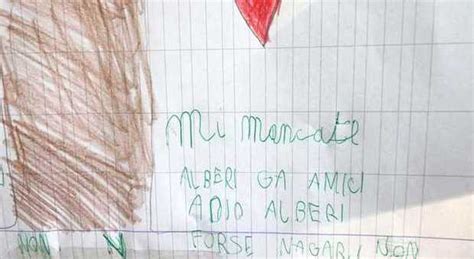 Mi mancate
ALBERI GA AMICI
ADIO ALBERI
FORSE NAGARI NON
NON N